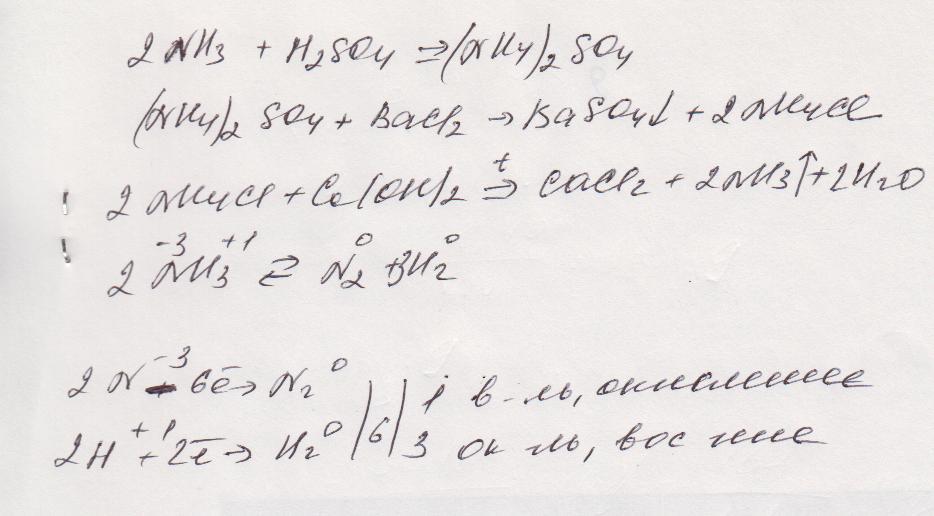 2NH3 + H2SO4 ⇒ (NH4)2 SO4
(NH4)2 SO4 + BaCl2 → BaSO4↓ + 2NH4Cl
2NH4Cl + Ca(OH)2 t⇒ CaCl2 + 2NH3↑ + 2H2O
2N⁻³H⁺¹3 ⇄ N⁰2 + 3H⁰2
2N⁻³ - 6ē → N2⁰ | 6 | 1 в-ль, окисление
2H⁺¹ + 2ē → H2⁰ | 6 | 3 ок-ль, вос-ние